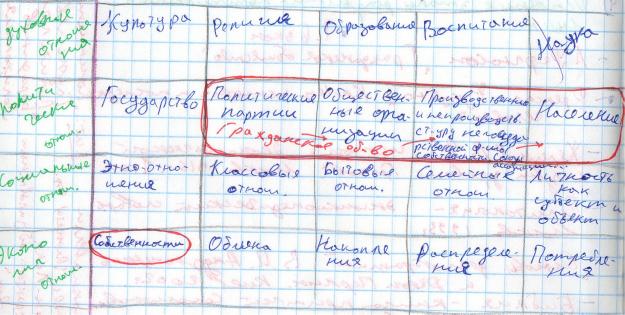 Духовные отноше ния Культура Религия Образование Воспитание Наука
Полити ческие отнош. Государство Политические партии Обществен- ные орга- низации Производственно и непроизводств. Население
Гражданское об-во
Социальные отнош. Этно-отно- шения Классовые отнош. Бытовые отнош. Семейные отнош Личность как субъект и объект
Эконо отнош. Собственности Обмена Накопле ния Распределе- ния Потребле- ния